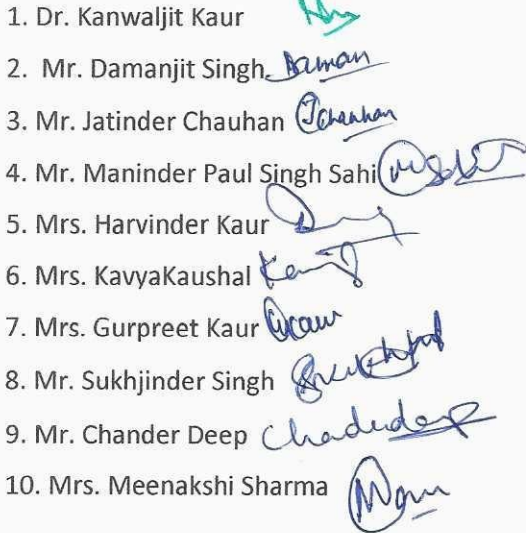 1. Dr. Kanwaljit Kaur
2. Mr. Damanjit Singh Daman
3. Mr. Jatinder Chauhan JChauhan
4. Mr. Maninder Paul Singh Sahi
5. Mrs. Harvinder Kaur
6. Mrs. KavyaKaushal
7. Mrs. Gurpreet Kaur
8. Mr. Sukhjinder Singh
9. Mr. Chander Deep
10. Mrs. Meenakshi Sharma